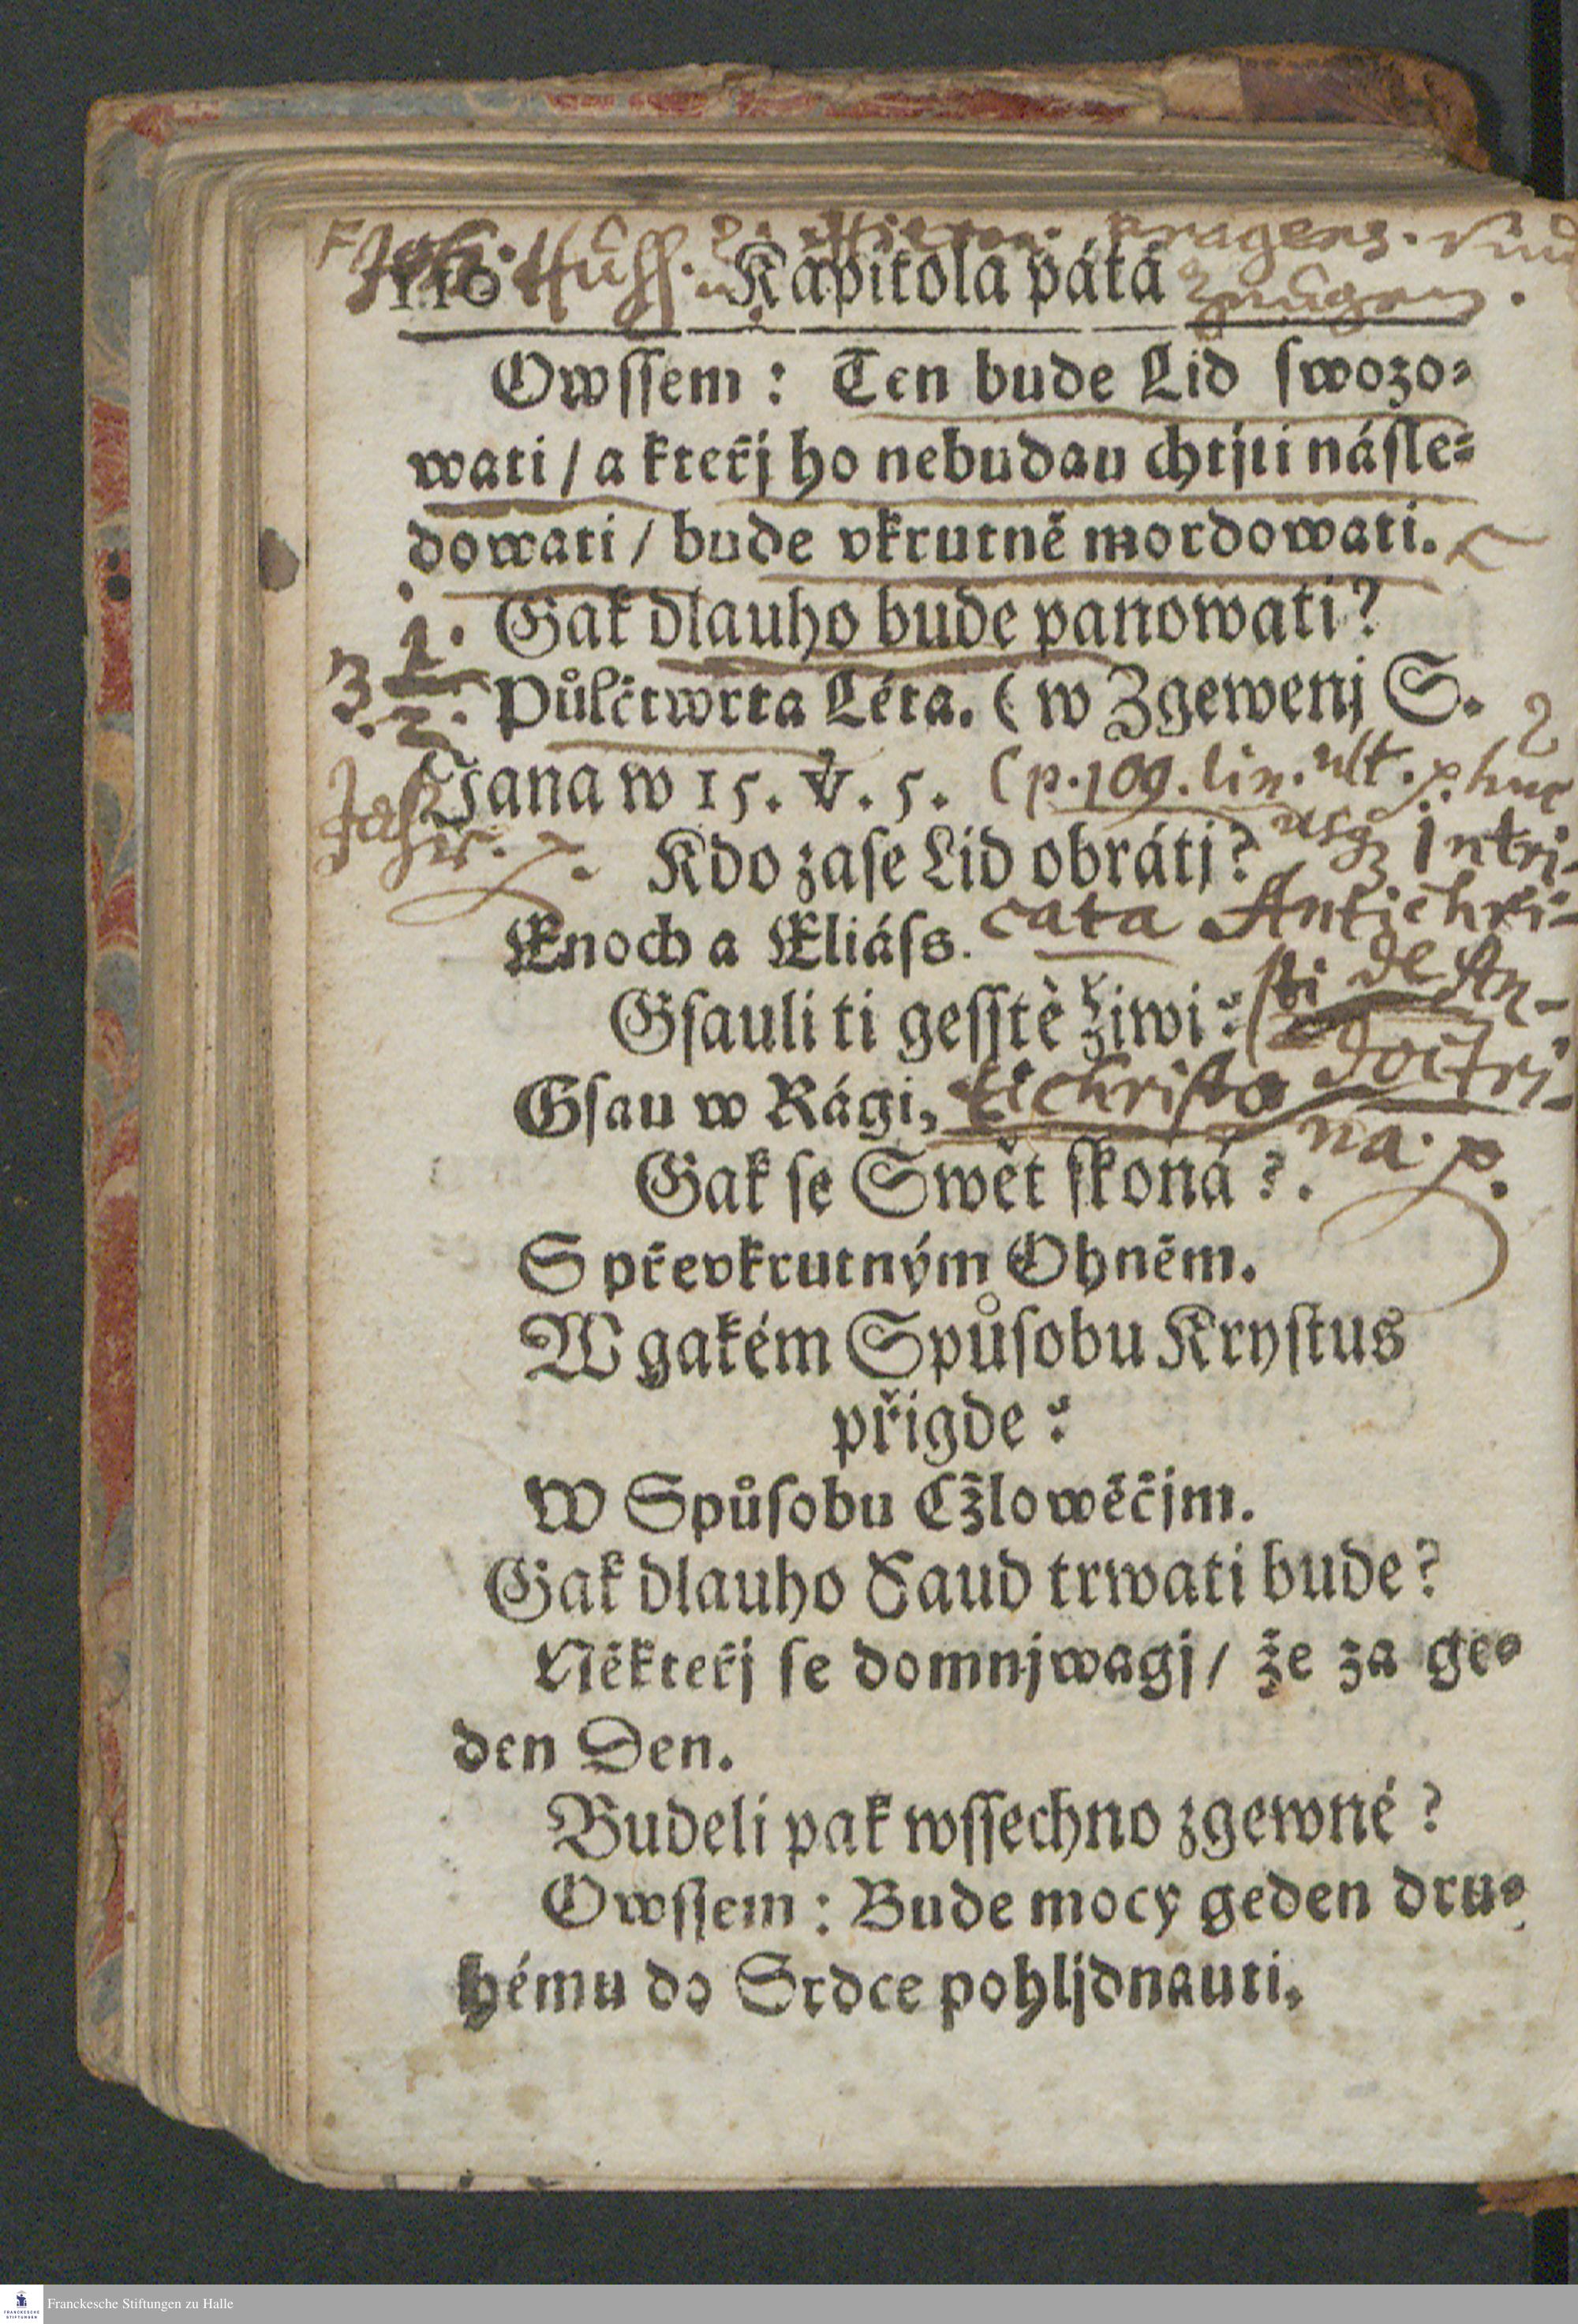 Joh. Huss. Hieron. Pragens. Sind
110 Kapitola pátá Zeugen.
Owssem: Ten bude Lid swozo-
wati / a kteřj ho nebudau chtjti násle-
dowati / bude vkrutně mordowati.
1. Gak dlauho bude panowati?
3 2. Půlčtwrta Léta. (w Zgewenj S.
Jana w 15. V. 5. (p. 109. lin. ult.
Jahr. Kdo zase Lid obrátj? usq; intri-
Enoch a Eliáss. cata Antichri-
Gsauli ti gesstě žiwi? sti de An-
Gsau w Rági, tichristo doctri-
Gak se Swět skoná? na.
S převkrutným Ohněm.
W gakém Spůsobu Krystus
přigde?
W Spůsobu Cžlowěčjm.
Gak dlauho Saud trwati bude?
Někteřj se domnjwagj / že za ge-
den Den.
Budeli pak wssechno zgewné?
Owssem: Bude mocy geden dru-
hému do Srdce pohljdnauti.
Franckesche Stiftungen zu Halle